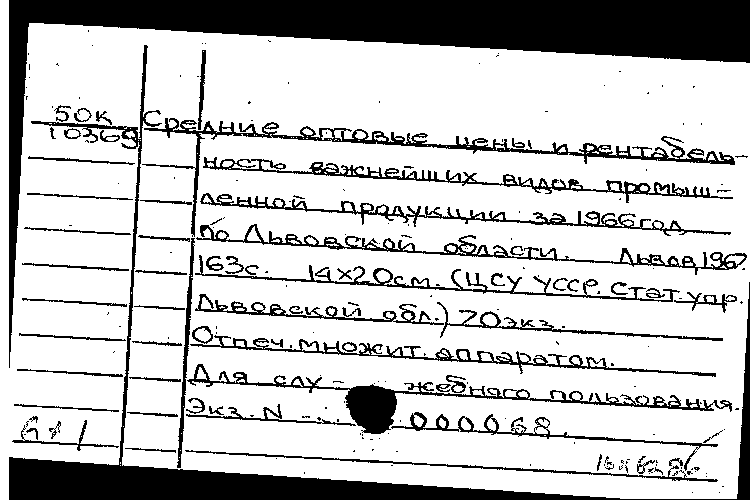 50К Средние оптовые цены и рентабель-
10369 ность важнейших видов промыш-
ленной продукции за 1966 год
по Львовской области. Львов, 1967.
163с. 14х20см. (ЦСУ УССР. Стат. упр.
Львовской обл.) 70экз.
Отпеч. множит. аппаратом.
Для слу- жебного пользования.
Экз. N -. 000068.